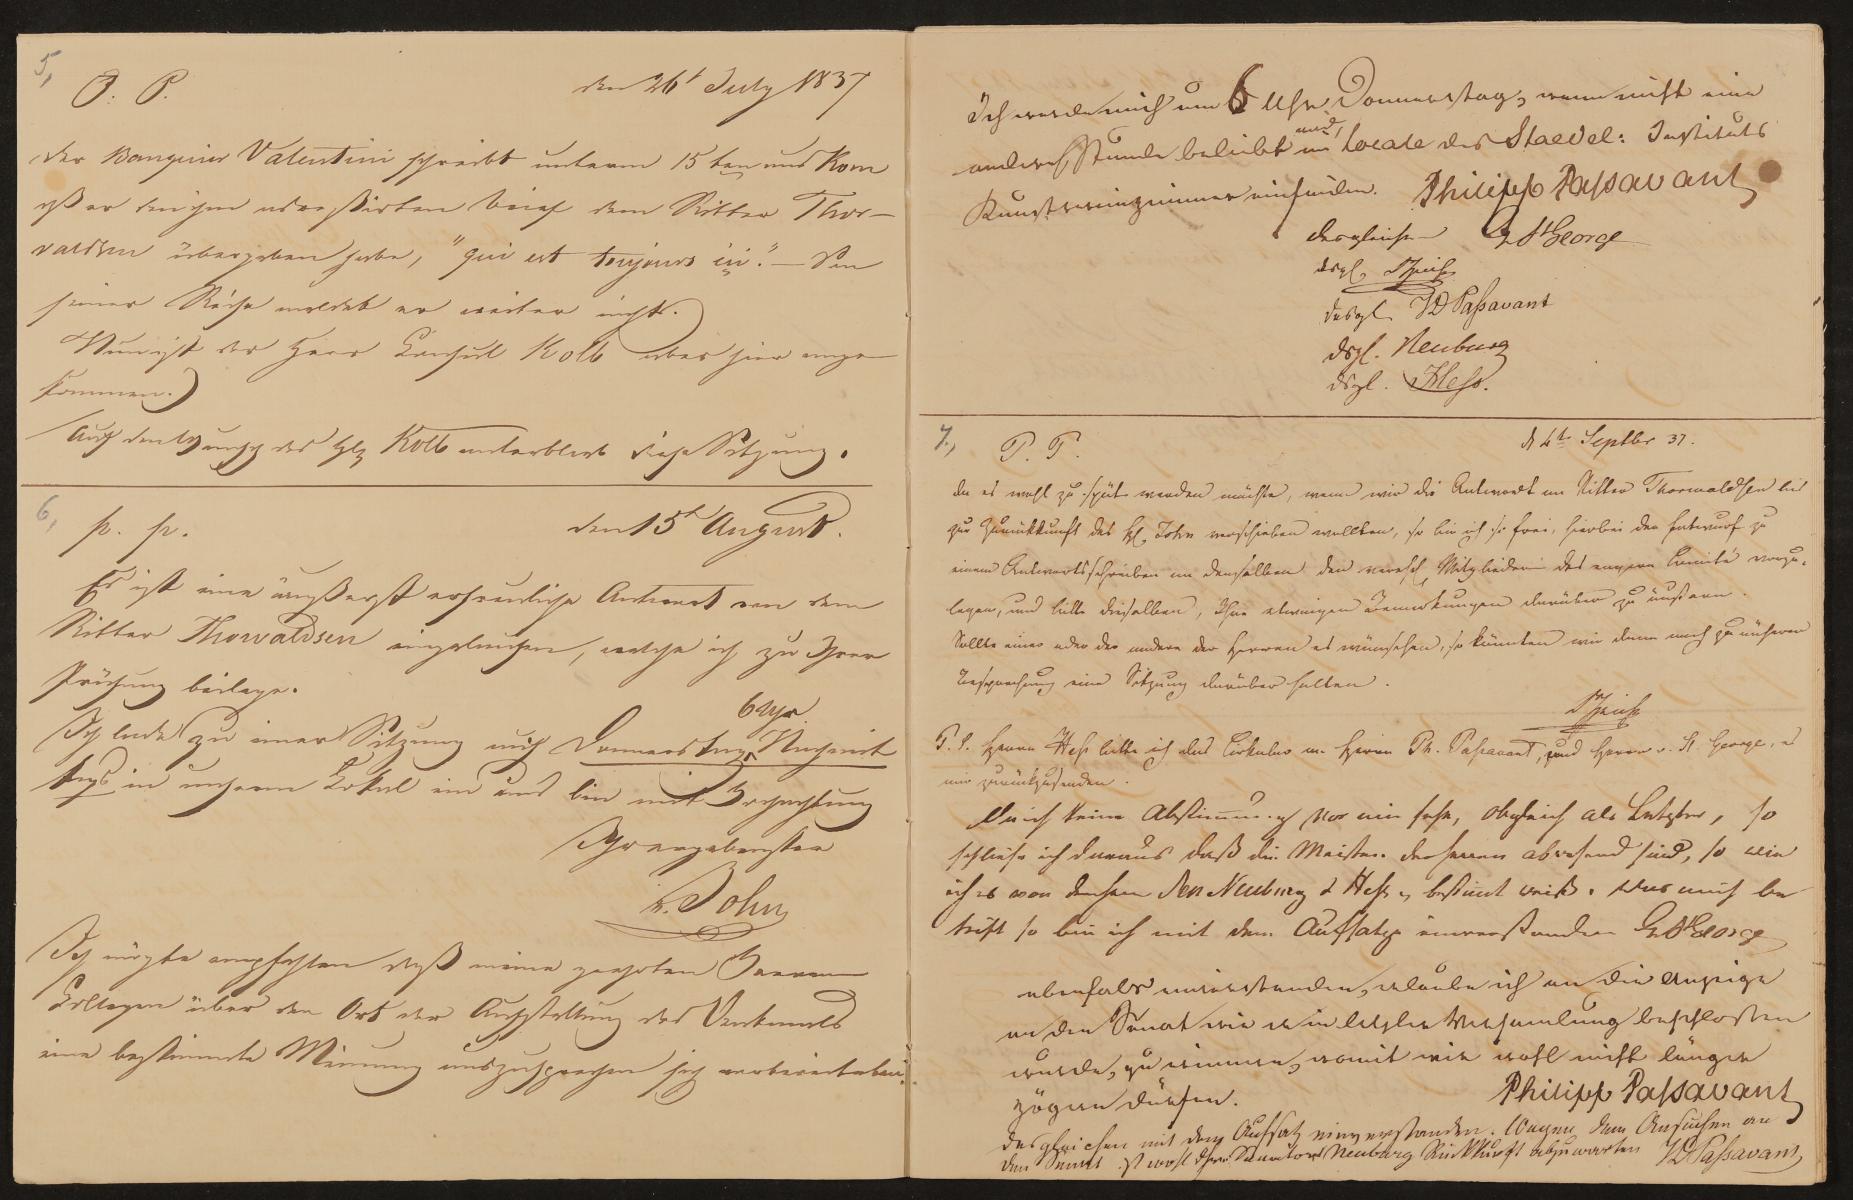 5,
P. P.
den 26t July 1837
Der Banquier Valentini schreibt unterm 15ten aus Rom
daß er den ihm adressirten Brief dem Ritter Thor-
valdsen übergeben habe, "qui est toujours ici". — Von
seiner Reise meldet er weiter nichts.
Nun ist der Herr Consul Kolb aber hier ange-
kommen.
Auf den Wunsch des Hn Kolb unterblieb diese Sitzung.
6,
p. p.
den 15t August.
Es ist eine äußerst erfreuliche Antwort von dem
Ritter Thorwaldsen eingelaufen, welche ich zu Ihrer
Prüfung beilege.
6 Uhr
Ich lade zu einer Sitzung auf Donnerstag Nachmit
tags in unserm Lokal ein und bin mit Hochachtung
Ihr ergebenster
v. John
Ich möchte empfehlen daß meine geehrten Herren
Collegen über den Ort der Aufstellung des Denkmals
eine bestimmte Meinung auszusprechen sich vorbereiteten.
Ich werde mich um 6 Uhr Donnerstag, wenn nicht eine
andere Stunde beliebt wird, im Locale des Staedel: Instituts
Kunstvereinzimmer einfinden. Philipp Passavant
desgleichen G StGeorge
dsgl. Spieß
desgl. JD Passavant
dsgl. Neuburg
dsgl. Hess.
7.,
P. P.
d 4t Septbr 37.
Da es wohl zu spät werden möchte, wenn wir die Antwort an Ritter Thorwaldsen bis
zur Zurückkunft des H. John verschieben wollten, so bin ich so frei, hierbei den Entwurf zu
einem Antwortsschreiben an denselben den verehrl. Mitgliedern des engern Comité vorzu-
legen, und bitte dieselben, Ihre etwaigen Bemerkungen darüber zu äußern.
Sollte einer oder der andere der Herren es wünschen, so könnten wir dann noch zu näherer
Besprechung eine Sitzung darüber halten.
Spieß
P. S. Herrn Hess bitte ich das Cirkular an Herrn Ph. Passavant, und Herrn v. St. George, es
mir zurückzusenden.
Da ich keine Abstimmung vor mir sehe, obgleich als Letzter, so
schließe ich daraus daß die Meisten der Herren abwesend sind, so wie
ich es von denen Neuburg & Hess bestimt weiß. Was mich be
trift so bin ich mit dem Aufsatze einverstanden G StGeorge
ebenfalls einverstanden, erlaube ich an die Anzeige
an den Senat wie es in letzter Versamlung beschlossen
wurde, zu erinnern, womit wir wohl nicht länger
zögern dürfen. Philipp Passavant
desgleichen mit dem Aufsatz einverstanden. Wegen dem Ansuchen an
den Senat ist wohl Senators Neuburg Rückkunft abzuwarten JD Passavant